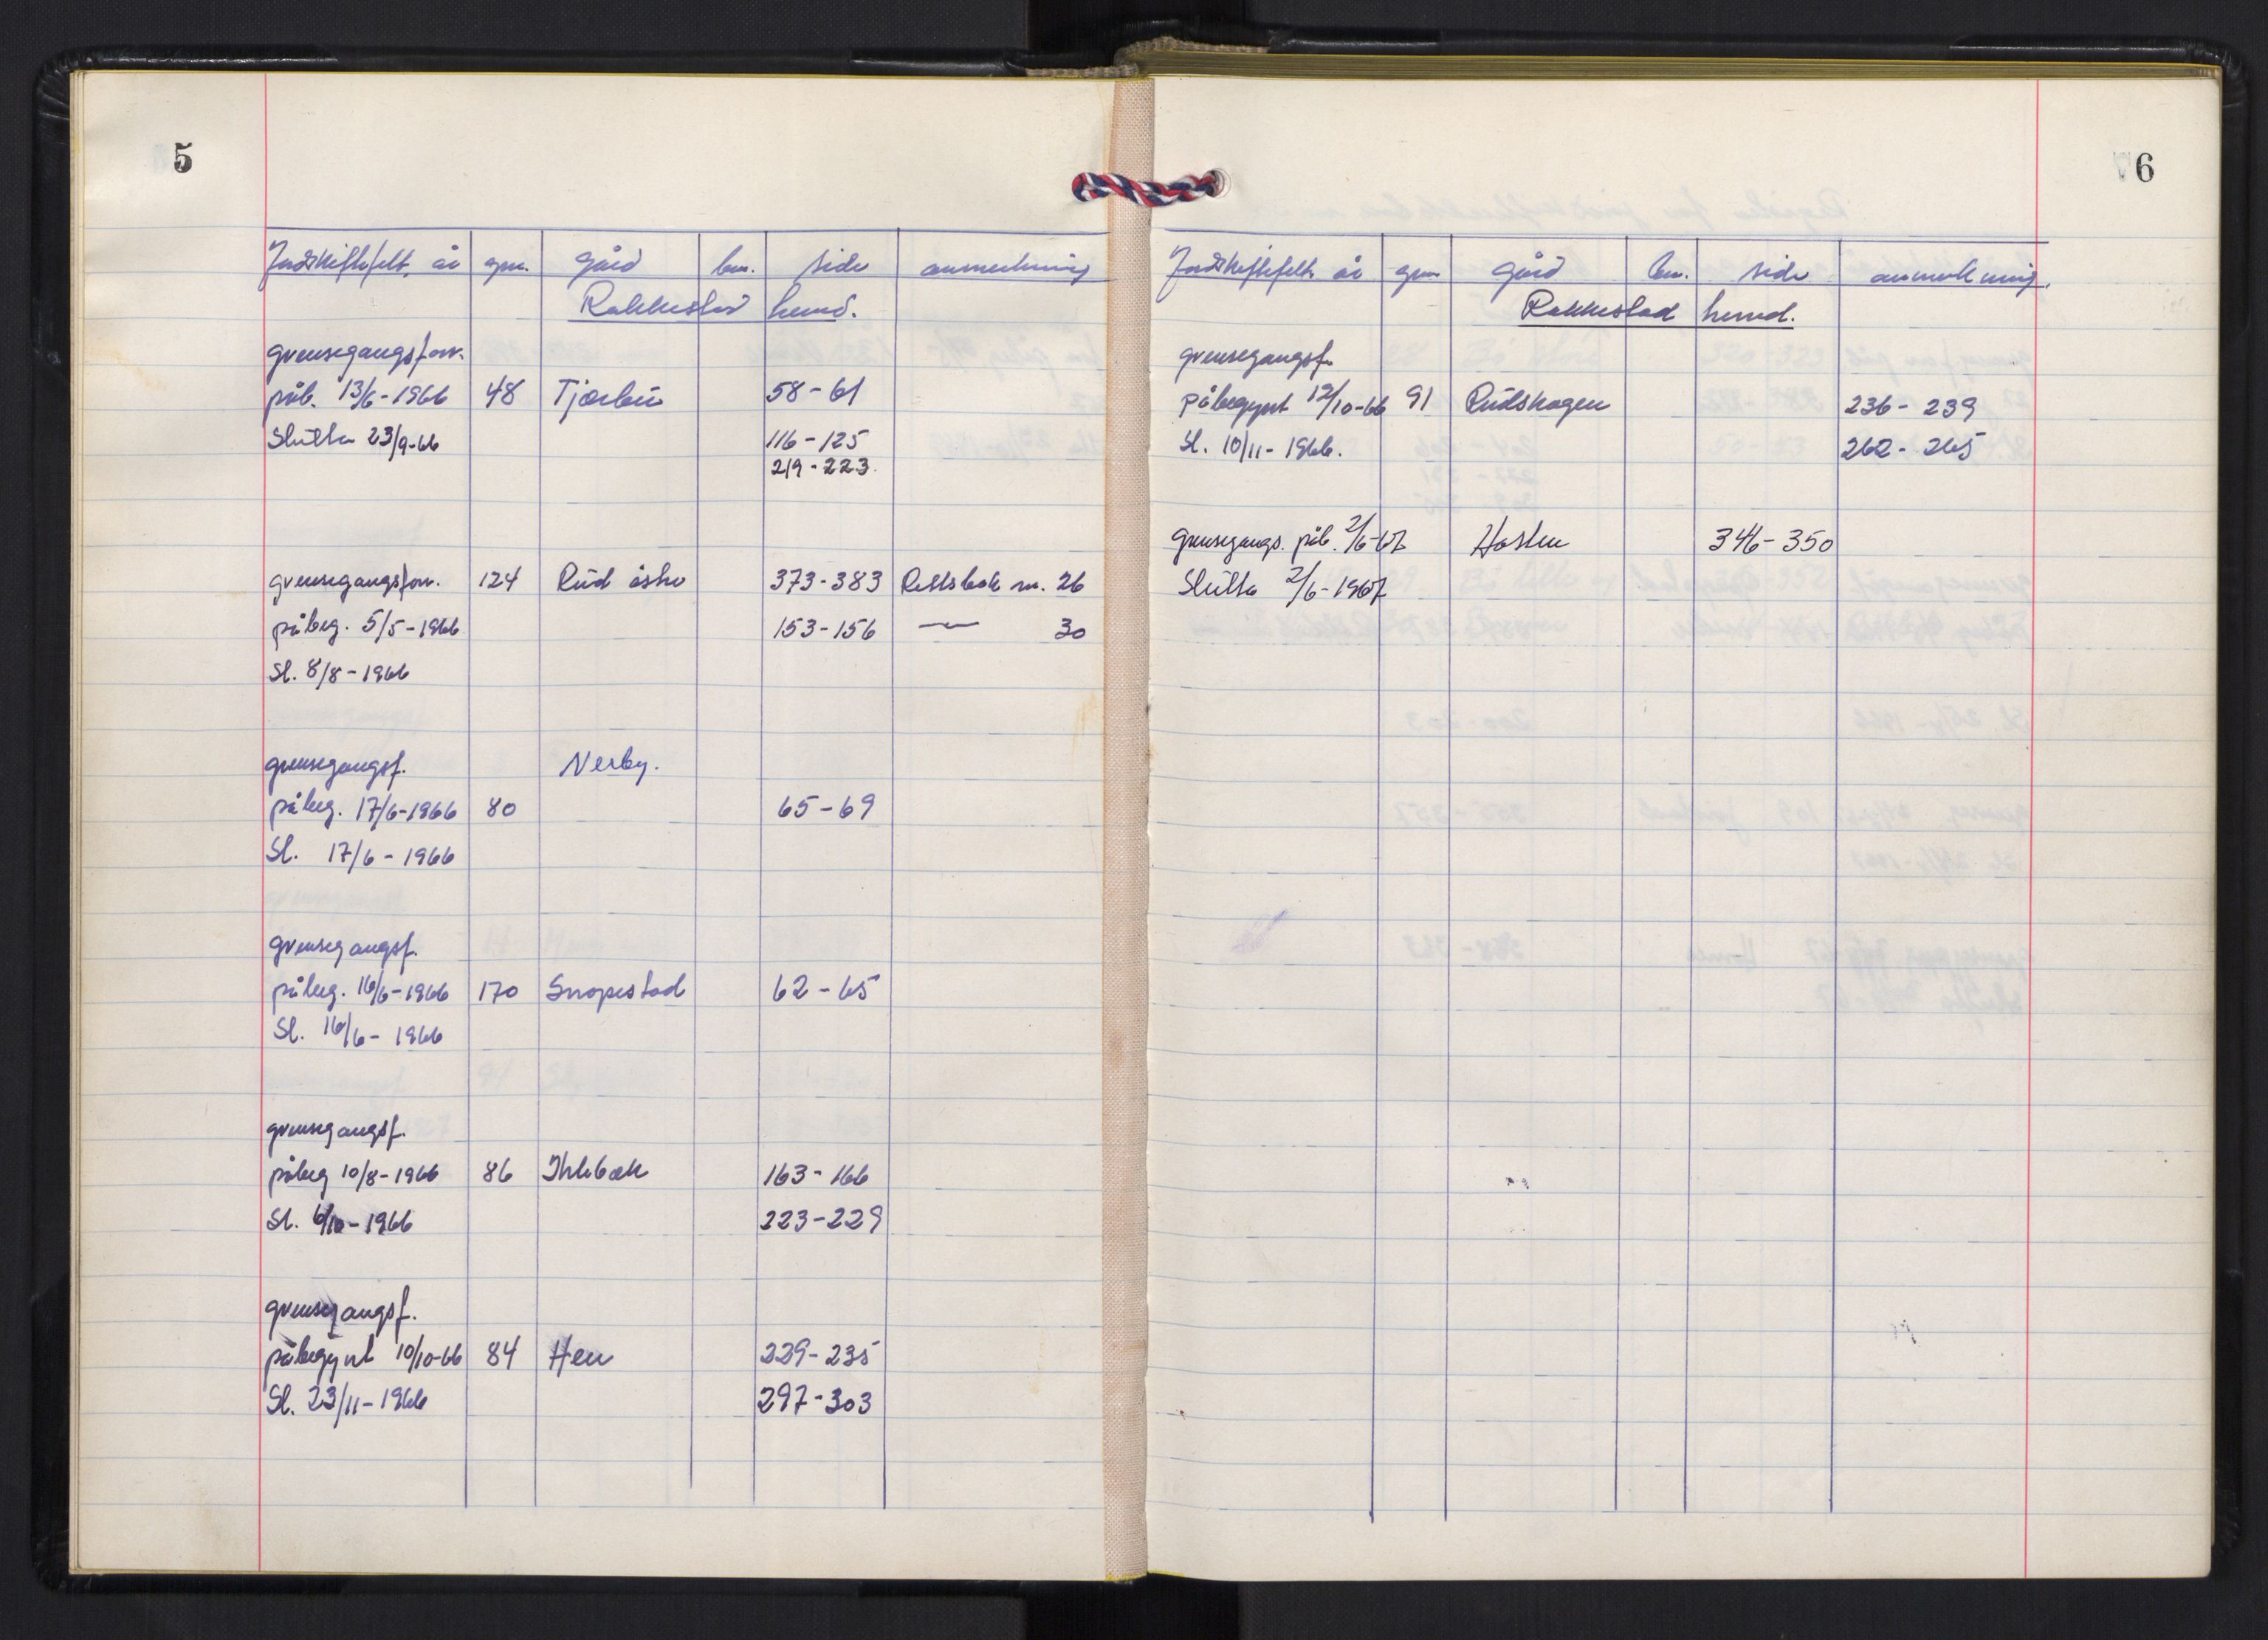 5
Jordskiftefelt, år gnr. gård bnr. side anmerkning
Rakkestad herred.
grensegangsforr.
påb. 13/6-1966 48 Tjærbu 58-61
Slutta 23/9-66 116-125
219-223.
grensegangsforr. 124 Rud østre 373-383 Rettsbok nr. 26
påbeg. 5/5-1966 153-156 — 30
Sl. 8/8-1966
grensegangsf. Nerby.
påbeg. 17/6-1966 80 65-69
Sl. 17/6-1966
grensegangsf.
påbeg. 16/6-1966 170 Snopestad 62-65
Sl. 16/6-1966
grensegangsf.
påbeg 10/8-1966 86 Ihlebæk 163-166
Sl. 6/10-1966 223-229
grensegangsf.
påbegynt 10/10-66 84 Hen 229-235
Sl. 23/11-1966 297-303
6
Jordskiftefelt, år gnr gård bnr. side anmerkning.
Rakkestad herred.
grensegangsf.
påbegynt 12/10-66 91 Rudskogen 236-239
Sl. 10/11-1966. 262-265
grensegangs. påb. 2/6-67 Haslen 346-350
Slutta 2/6-1967